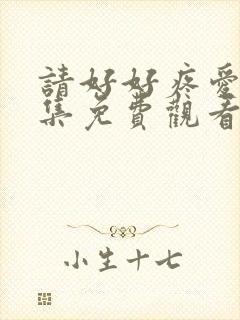 請好好疼愛
集免費觀看
小生十七